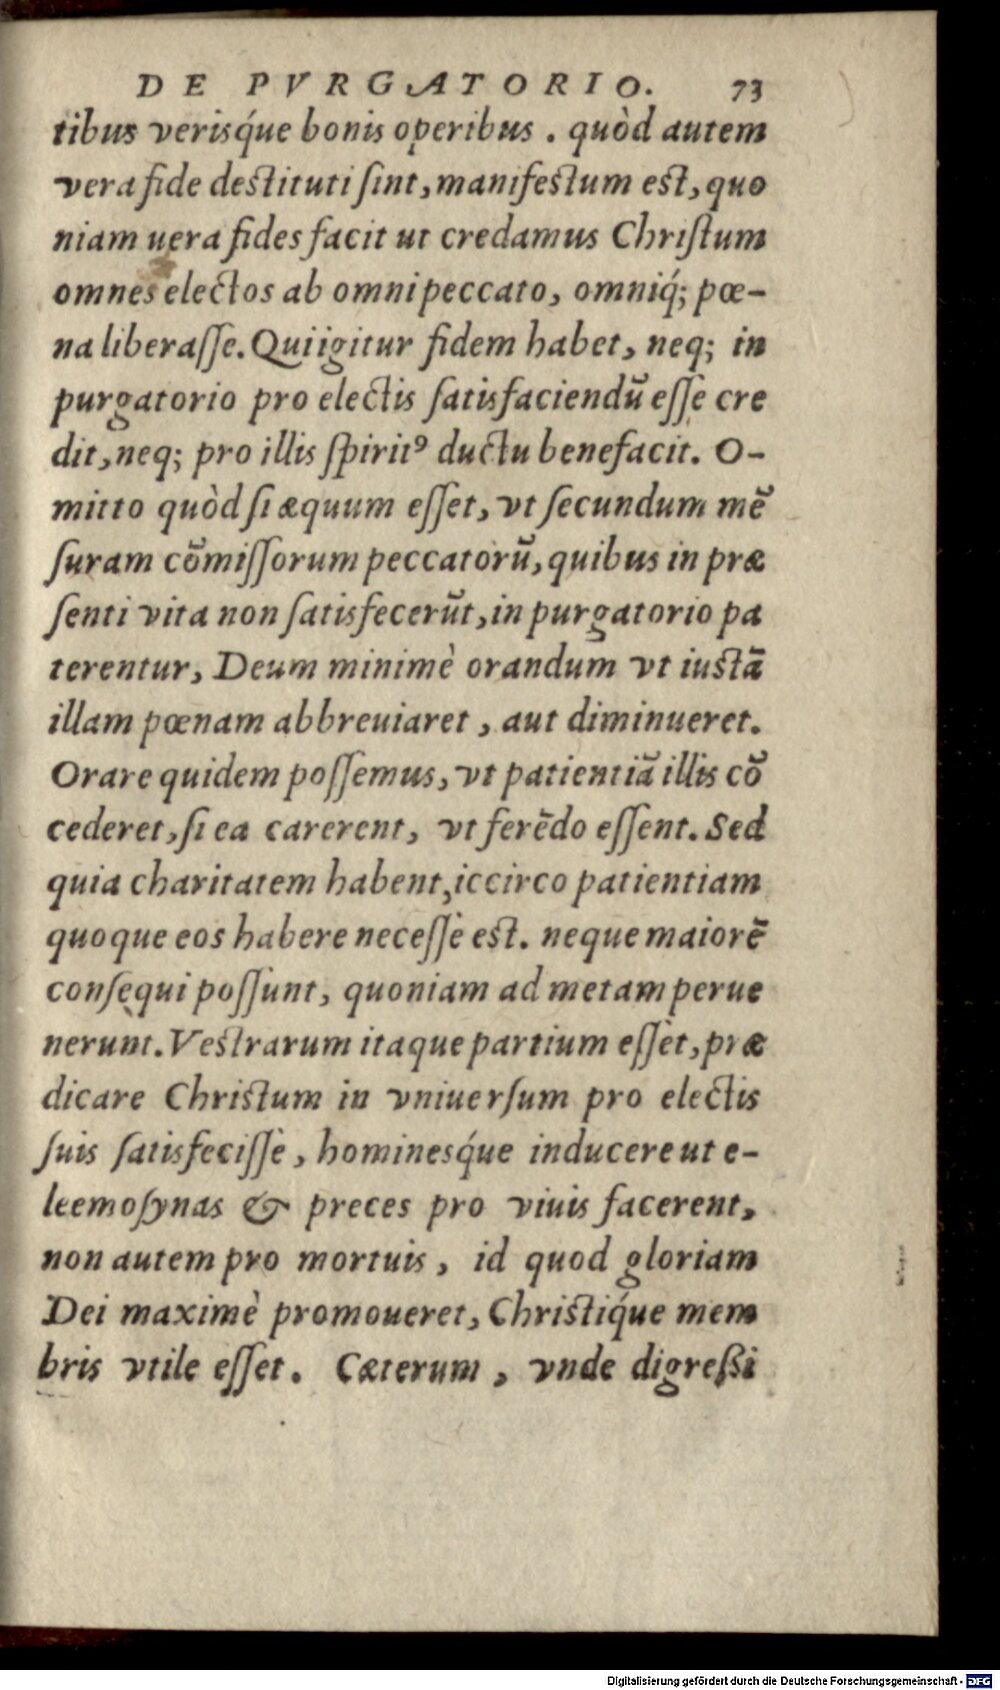 DE PVRGATORIO. 73
tibus verisq́ue bonis operibus. quòd autem
vera fide destituti ſint, manifestum est, quo
niam uera fides facit ut credamus Chriſtum
omnes electos ab omni peccato, omniq́; pœ-
na liberaſſe. Qui igitur fidem habet, neq; in
purgatorio pro electis ſatisfaciendũ eſſe cre
dit, neq; pro illis ſpiritꝰ ductu benefacit. O-
mitto quòd ſi æquum eſſet, vt ſecundum mẽ
ſuram cõmiſſorum peccatorũ, quibus in præ
ſenti vita non ſatisfecerũt, in purgatorio pa
terentur, Deum minimè orandum vt iustã
illam pœnam abbreuiaret, aut diminueret.
Orare quidem poſſemus, vt patientiã illis cõ
cederet, ſi ea carerent, vt ferẽdo eſſent. Sed
quia charitatem habent, iccirco patientiam
quoque eos habere neceſſe est. neque maiorẽ
conſequi poſſunt, quoniam ad metam perue
nerunt. Vestrarum itaque partium eſſet, præ
dicare Christum in vniuerſum pro electis
ſuis ſatisfeciſſe, hominesq́ue inducere ut e-
leemoſynas & preces pro viuis facerent,
non autem pro mortuis, id quod gloriam
Dei maximè promoueret, Christiq́ue mem
bris vtile eſſet. Cæterum, vnde digreßi
Digitalisierung gefördert durch die Deutsche Forschungsgemeinschaft - DFG